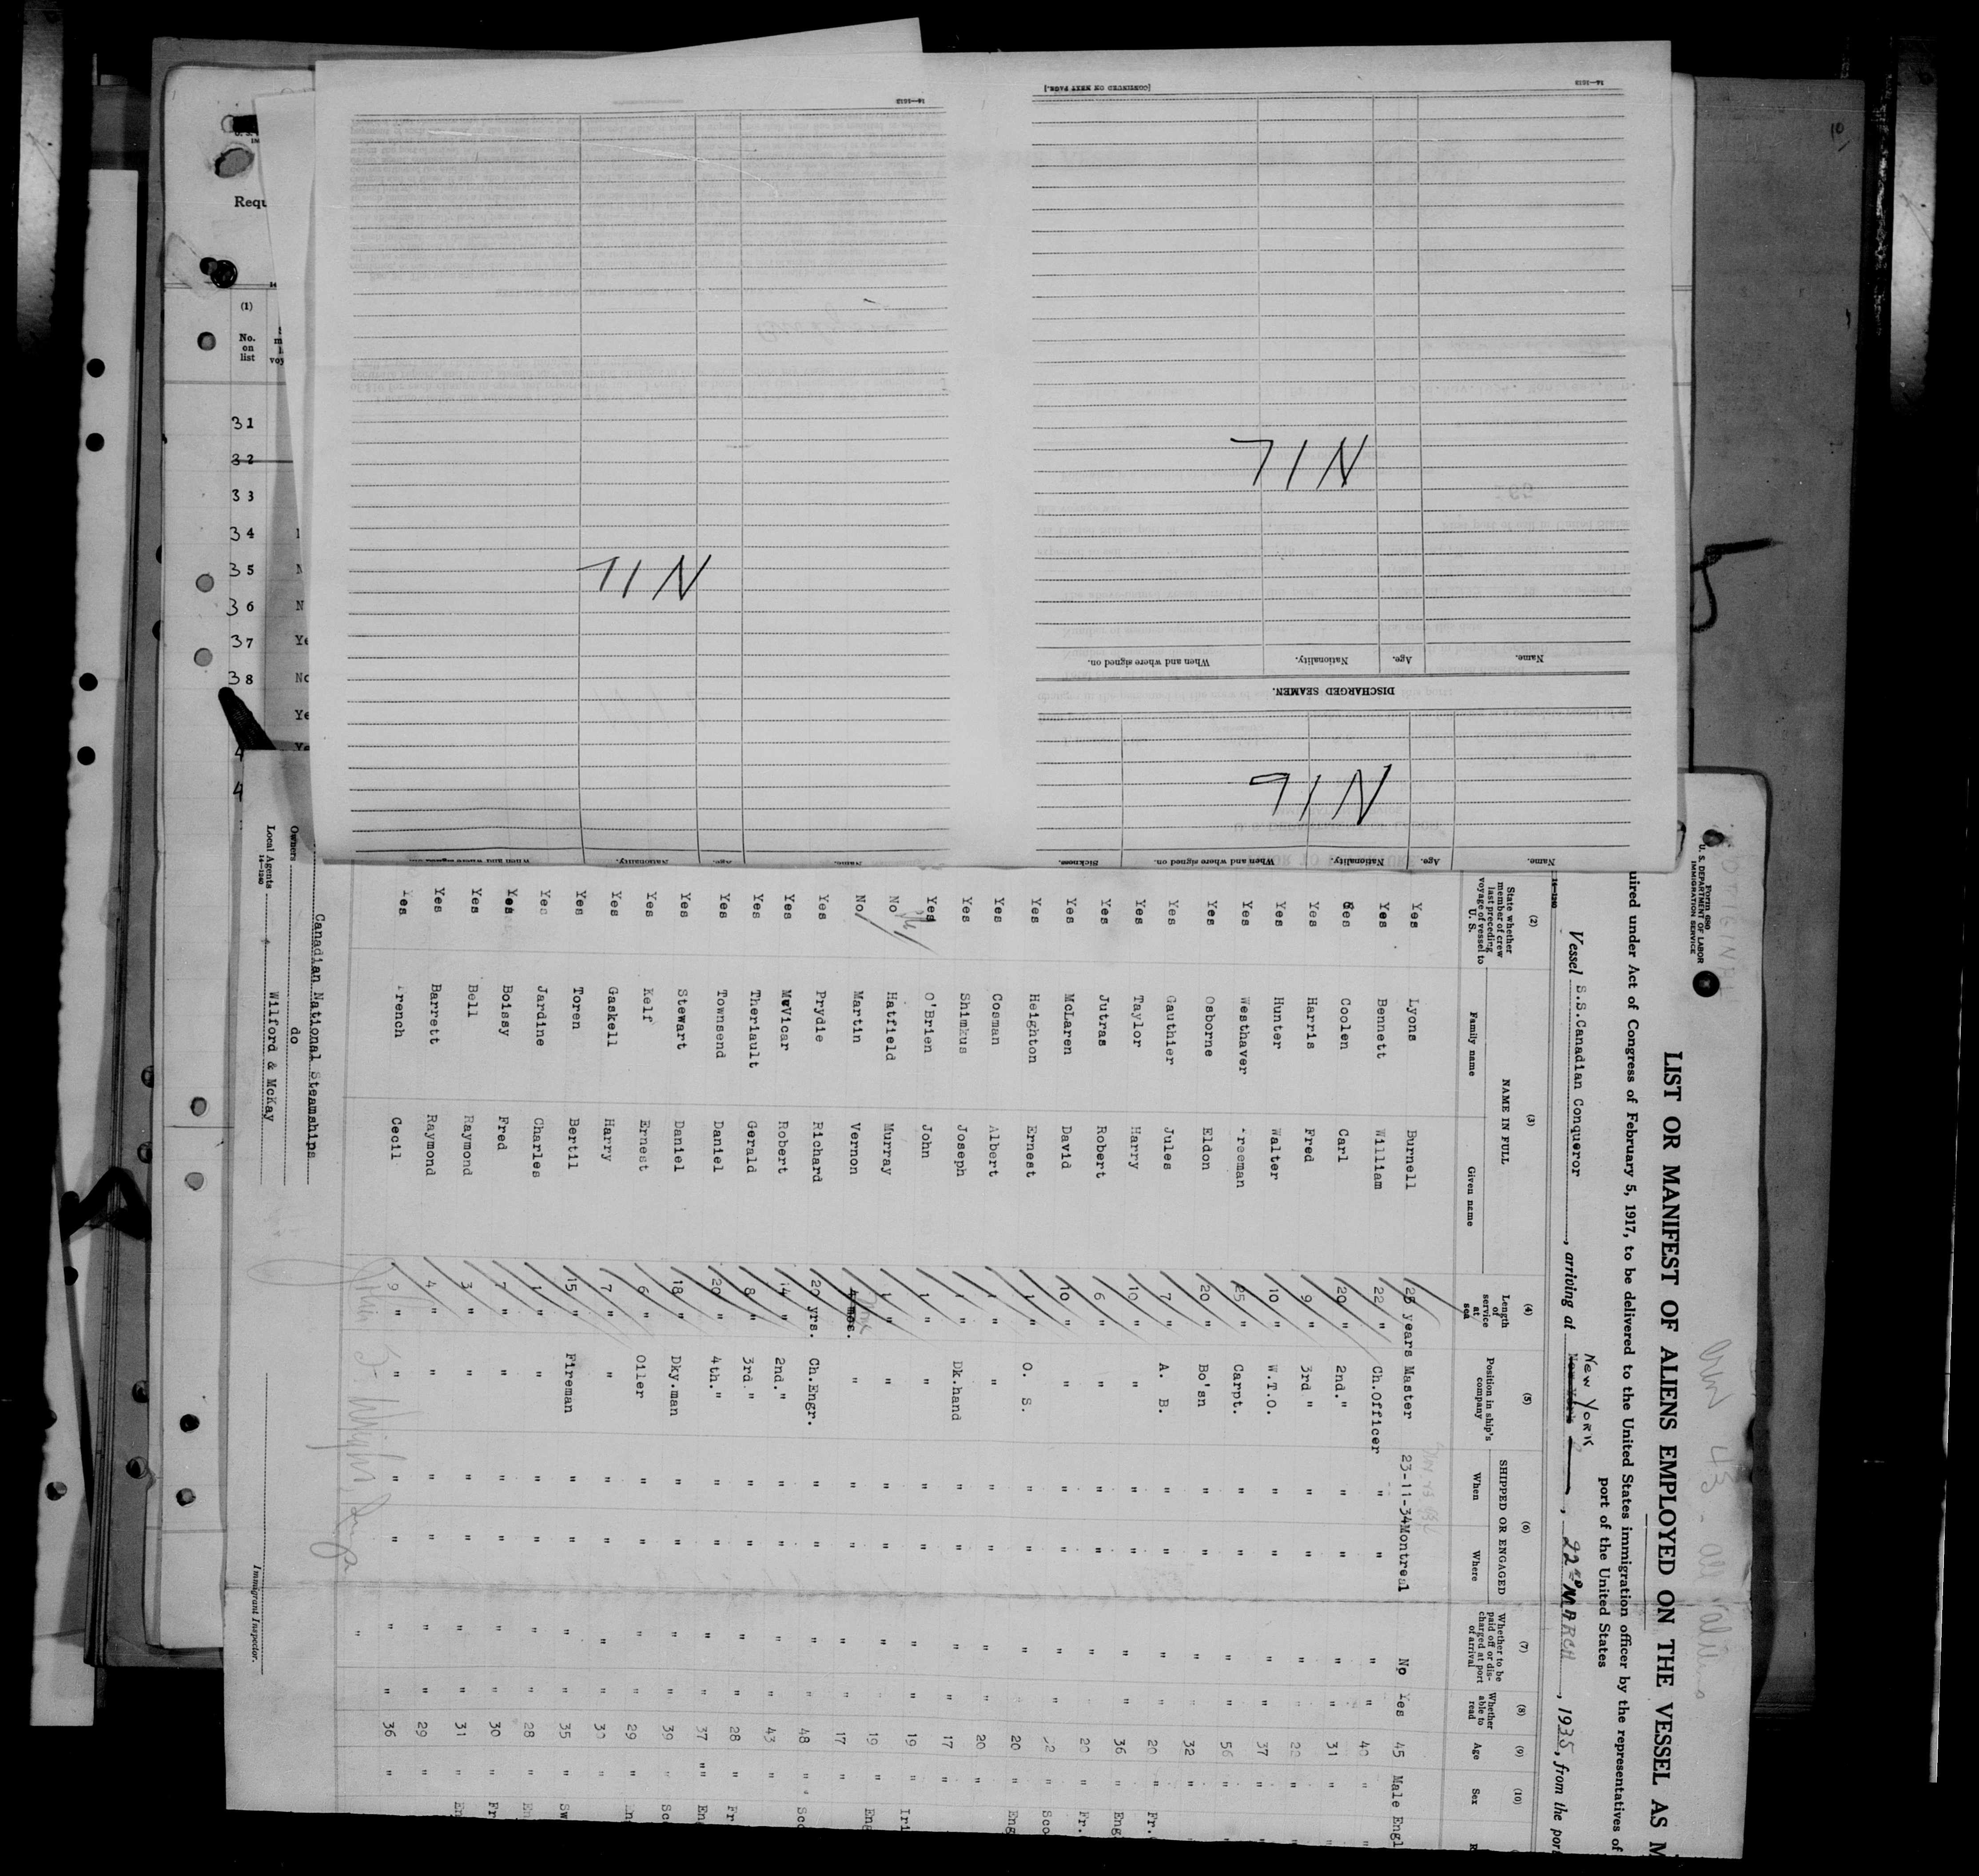 Form 680
U. S. DEPARTMENT OF LABOR
IMMIGRATION SERVICE
LIST OR MANIFEST OF ALIENS EMPLOYED ON THE VESSEL AS M
uired under Act of Congress of February 5, 1917, to be delivered to the United States immigration officer by the representatives of
port of the United States
Vessel S.S.Canadian Conqueror, arriving at New York, 22nd MARCH, 1935, from the port
(2) (3) (4) (5) (6) (7) (8) (9) (10)
State whether member of crew last preceding voyage of vessel to U. S.
NAME IN FULL
Family name Given name
Length of service at sea
Position in ship's company
SHIPPED OR ENGAGED
When Where
Whether to be paid off or discharged at port of arrival
Whether able to read
Age Sex
Yes Lyons Burnell 25 years Master 23-11-34 Montreal No Yes 45 Male Engl
Yes Bennett William 22 " Ch.Officer " " " " 40 "
Yes Coolen Carl 20 " 2nd. " " " " " 31 "
Yes Harris Fred 9 " 3rd " " " " "
Yes Hunter Walter 10 " W.T.O. " " " " 37 "
Yes Westhaver Freeman 25 " Carpt. " " " " 56 "
Yes Osborne Eldon 20 " Bo'sn " " " 32 " "
Yes Gauthier Jules 7 " A. B. " " " " 20 " Fr.
Yes Taylor Harry 10 " " " " " " 36 " Eng
Yes Jutras Robert 6 " " " " " 20 " Fr.
Yes McLaren David 10 " " " " " " " Sco
Yes Heighton Ernest 1 " O. S. " " " 20 " Eng
Yes Cosman Albert " " " " " " " 20 "
Yes Shimkus Joseph " " Dk.hand " " " " 17 "
Yes O'Brien John 1 " " " " " " 19 " Iri
No Hatfield Murray 1 " " " " " 19 " Eng
No Martin Vernon 4 mos. " " " " 17 "
Yes Prydie Richard 20 yrs. Ch.Engr. " " " " 48 " Sco
Yes McVicar Robert 14 " 2nd." " " " " 43 "
Yes Theriault Gerald 8 " 3rd." " " " " 28 " Fr
Yes Townsend Daniel 20 " 4th." " " " " 37 "" En
Yes Stewart Daniel 18 " Dky.man " " " " 39 " Sc
Yes Kelf Ernest 6 " Oiler " " " " 29 " En
Yes Gaskell Harry 7 " " " " " " 30 "
Yes Toren Bertil 15 " Fireman " " " " 35 " Sw
Yes Jardine Charles 1 " " " " " " 28 " En
Yes Boissy Fred 7 " " " " " " 30 " Fr
Yes Bell Raymond 3 " " " " " " 31 " En
Yes Barrett Raymond 4 " " " " " " 29 "
Yes French Cecil 9 " " " " " " 36 "
Canadian National Steamships
Owners do
Local Agents Wilford & McKay
14—1240
Immigrant Inspector.
Name. Age. Nationality. When and where signed on. Sickness.
NIL
DISCHARGED SEAMEN.
Name. Age. Nationality. When and where signed on.
NIL
[CONTINUED ON NEXT PAGE.]
14—1513
Name. Age. Nationality. When and where signed on.
NIL
14—1513
Requ
(1)
No. on list
31
32
33
34
35
36
37 Ye
38 No
Ye
4 Ye
4